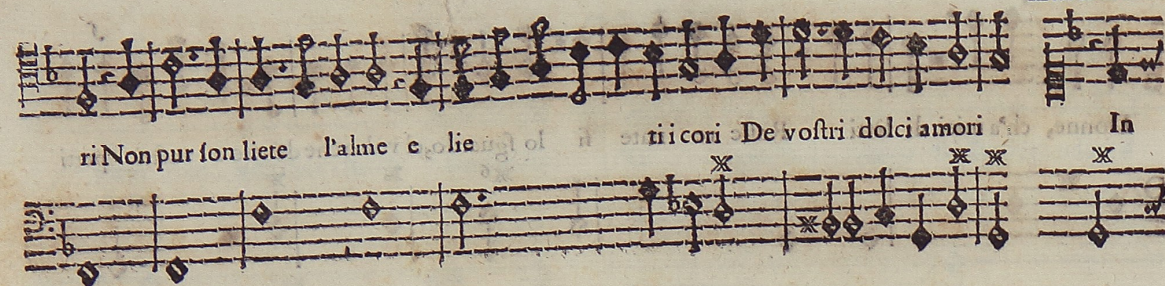 ri Non pur ſon liete l'alme e lie ti i cori De voſtri dolci amori In